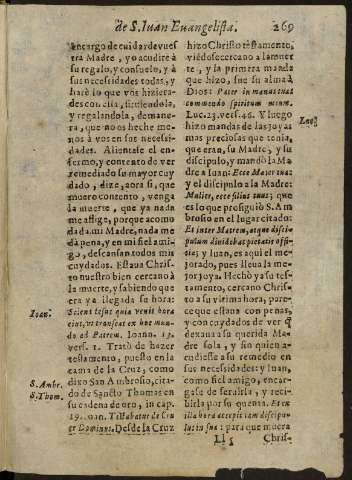 de S. Iuan Euangelista. 269
encargo de cuidar de vues
tra Madre, y o acudire à
su regalo, y consuelo, y à
sus necessidades todas, y
harè lo que vos hizierades
con ella, siruiendola, y
regalandola, de mane-
ra, que no os heche me-
nos à vos en sus necessi-
dades. Alientase el en-
fermo, y contento de ver
remediado su mayor cuy
dado, dize, aora si, que
muero contento, venga
la muerte, que ya nada
me aflige, porque acomo
dada mi Madre, nada me
dà pena, y en mi fiel ami-
go, descansan todos mis
cuydados. Estaua Chris-
to nuestro bien cercano à
la muerte, y sabiendo que
era ya llegada su hora:
Ioan.
Scient Iesus quia venit hora
eius, vt transeat ex hoc mun-
do ad Patrem. Ioann. 13.
vers. 1. Tratò de hazer
testamento, puesto en la
cama de la Cruz, como
S. Ambr.
dixo San Ambrosio, cita-
S. Thom.
do de Sancto Thomas en
su cadena de oro, in cap.
19. Ioan. Testabatur de Cru
ce Dominus. Desde la Cruz
hizo Christo testamento,
viédose cercano a la muer
te, y la primera manda
que hizo, fue su alma à
Dios: Pater in manus tuas
commendo spiritum meum.
Luc. 23. vers. 46. Y luego
hizo mandas de las joyas
mas preciosas que tenia,
que eran, su Madre, y su
discipulo, y mandò la Ma
dre a Iuan: Ecce Mater tua:
y el discipulo a la Madre:
Mulier, ecce filius tuus; que
es lo que prosiguiò S. Am
brosio en el lugar citado:
Et inter Matrem, atque disci
pulum diuidebat pietatis offi
cia; y Iuan, es aqui el me-
jorado, pues lleua la me-
jor joya. Hecho ya su tes-
tamento, cercano Chris-
to a su vltima hora, pare-
ce que estaua con pena, y
con cuydados de ver que
dexaua a su querida Ma-
dre sola, y sin quien a-
cudiesse a su remedio en
sus necessidades: y Iuan,
como fiel amigo, encar-
gase de seruirla, y reci-
birla por su quenta. Et ex
illa hora accepit eam discipu-
lus in sua: para que muera
Ll 5 Chris-